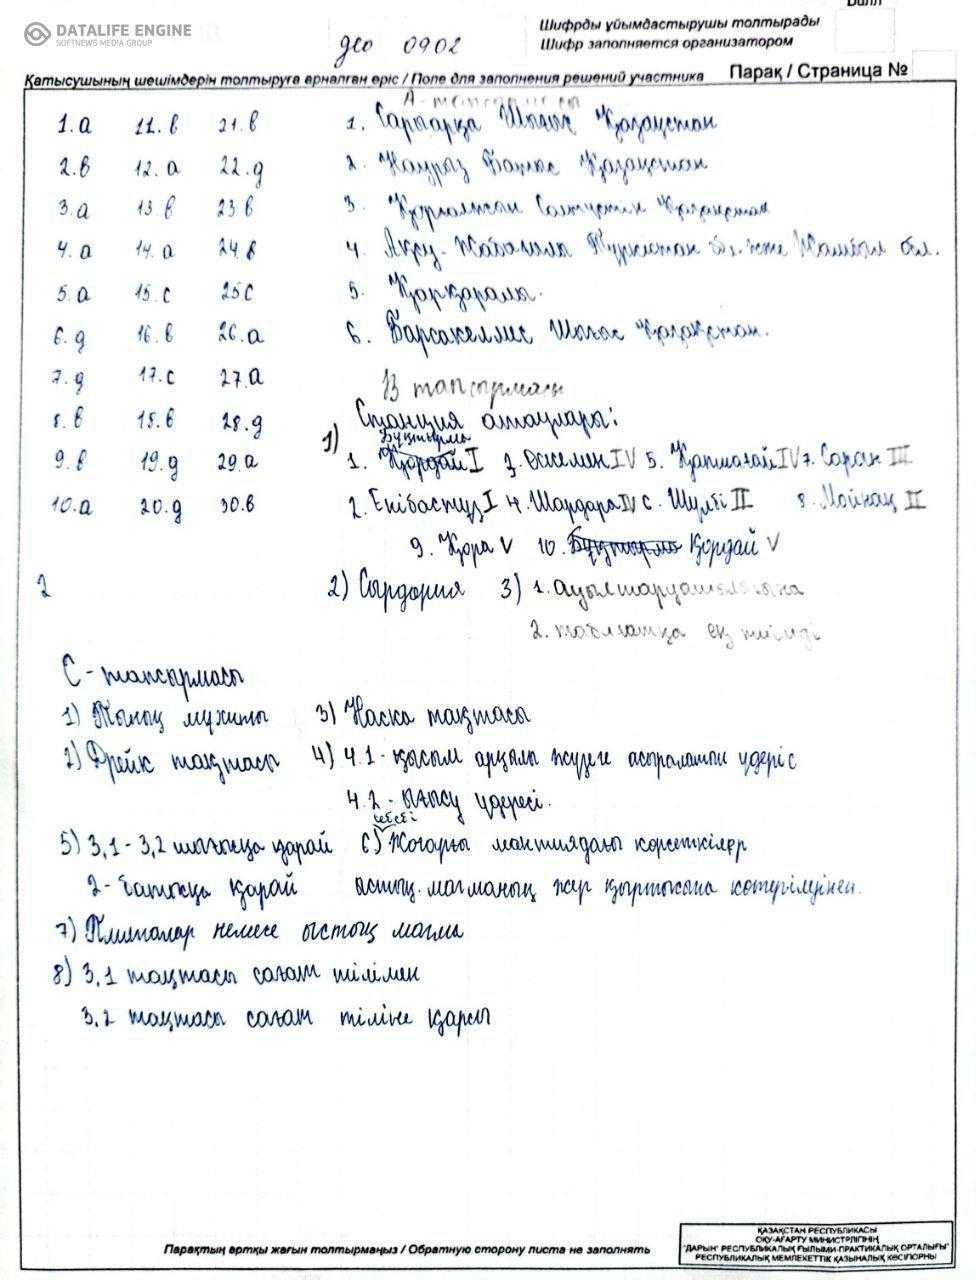 Балл
DATALIFE ENGINE
SOFTNEWS MEDIA GROUP
Шифрды ұйымдастырушы толтырады
Шифр заполняется организатором
geo 0902
Қатысушының шешімдерін толтыруға арналған еріс / Поле для заполнения решений участника
Парақ / Страница №
А-тапсырмасы
1.a 11.в 21.в
2.в 12.a 22.д
3.a 13.в 23 в
4.a 14.a 24.в
5.a 15.c 25c
6.д 16.в 26.a
7.д 17.c 27.a
8.в 18.в 28.д
9.в 19.д 29.a
10.a 20.д 30.в
1. Сарыарқа Шығыс Қазақстан
2. Наурыз Батыс Қазақстан
3. Қорғалжын Солтүстік Қазақстан
4. Ақсу-Жабағылы Түркістан об. және Жамбыл обл.
5. Қарқаралы.
6. Барсакелмес Шығыс Қазақстан.
В тапсырмасы
1) Станция атаулары:
Бұқтырма
1. Қордай I 3. Өскемен IV 5. Қапшағай IV 7. Саран III
2. Екібастұз I 4. Шардара IV 6. Шүлбі II 8. Мойнақ II
9. Қора V 10. Бұқтырма Қордай V
2
2) Сырдория 3) 1. Ауылшаруашылығына
2. табиғатқа ең тиімді
С - тапсырмасы
1) Тынық мұхиты 3) Наска тақтасы
2) Дрейк тақтасы 4) 4.1 - қысым арқылы жүзеге асыралатын үдеріс
4.2 - ығысу үдересі.
себебі
5) 3,1 - 3,2 шығысқа қарай 6) Жоғарғы мантиядағы көрсеткілер
2 - батысқа қарай ыстық магманың жер қыртысына көтерілуінен.
7) Плиталар немесе ыстық магма
8) 3.1 тақтасы сағат тілімен
3.2 тақтасы сағат тіліне қарсы
Парақтың артқы жағын толтырмаңыз / Обратную сторону листа не заполнять
ҚАЗАҚСТАН РЕСПУБЛИКАСЫ
ОҚУ-АҒАРТУ МИНИСТРЛІГІНІҢ
"ДАРЫН" РЕСПУБЛИКАЛЫҚ ҒЫЛЫМИ-ПРАКТИКАЛЫҚ ОРТАЛЫҒЫ"
РЕСПУБЛИКАЛЫҚ МЕМЛЕКЕТТІК ҚАЗЫНАЛЫҚ КӘСІПОРНЫ